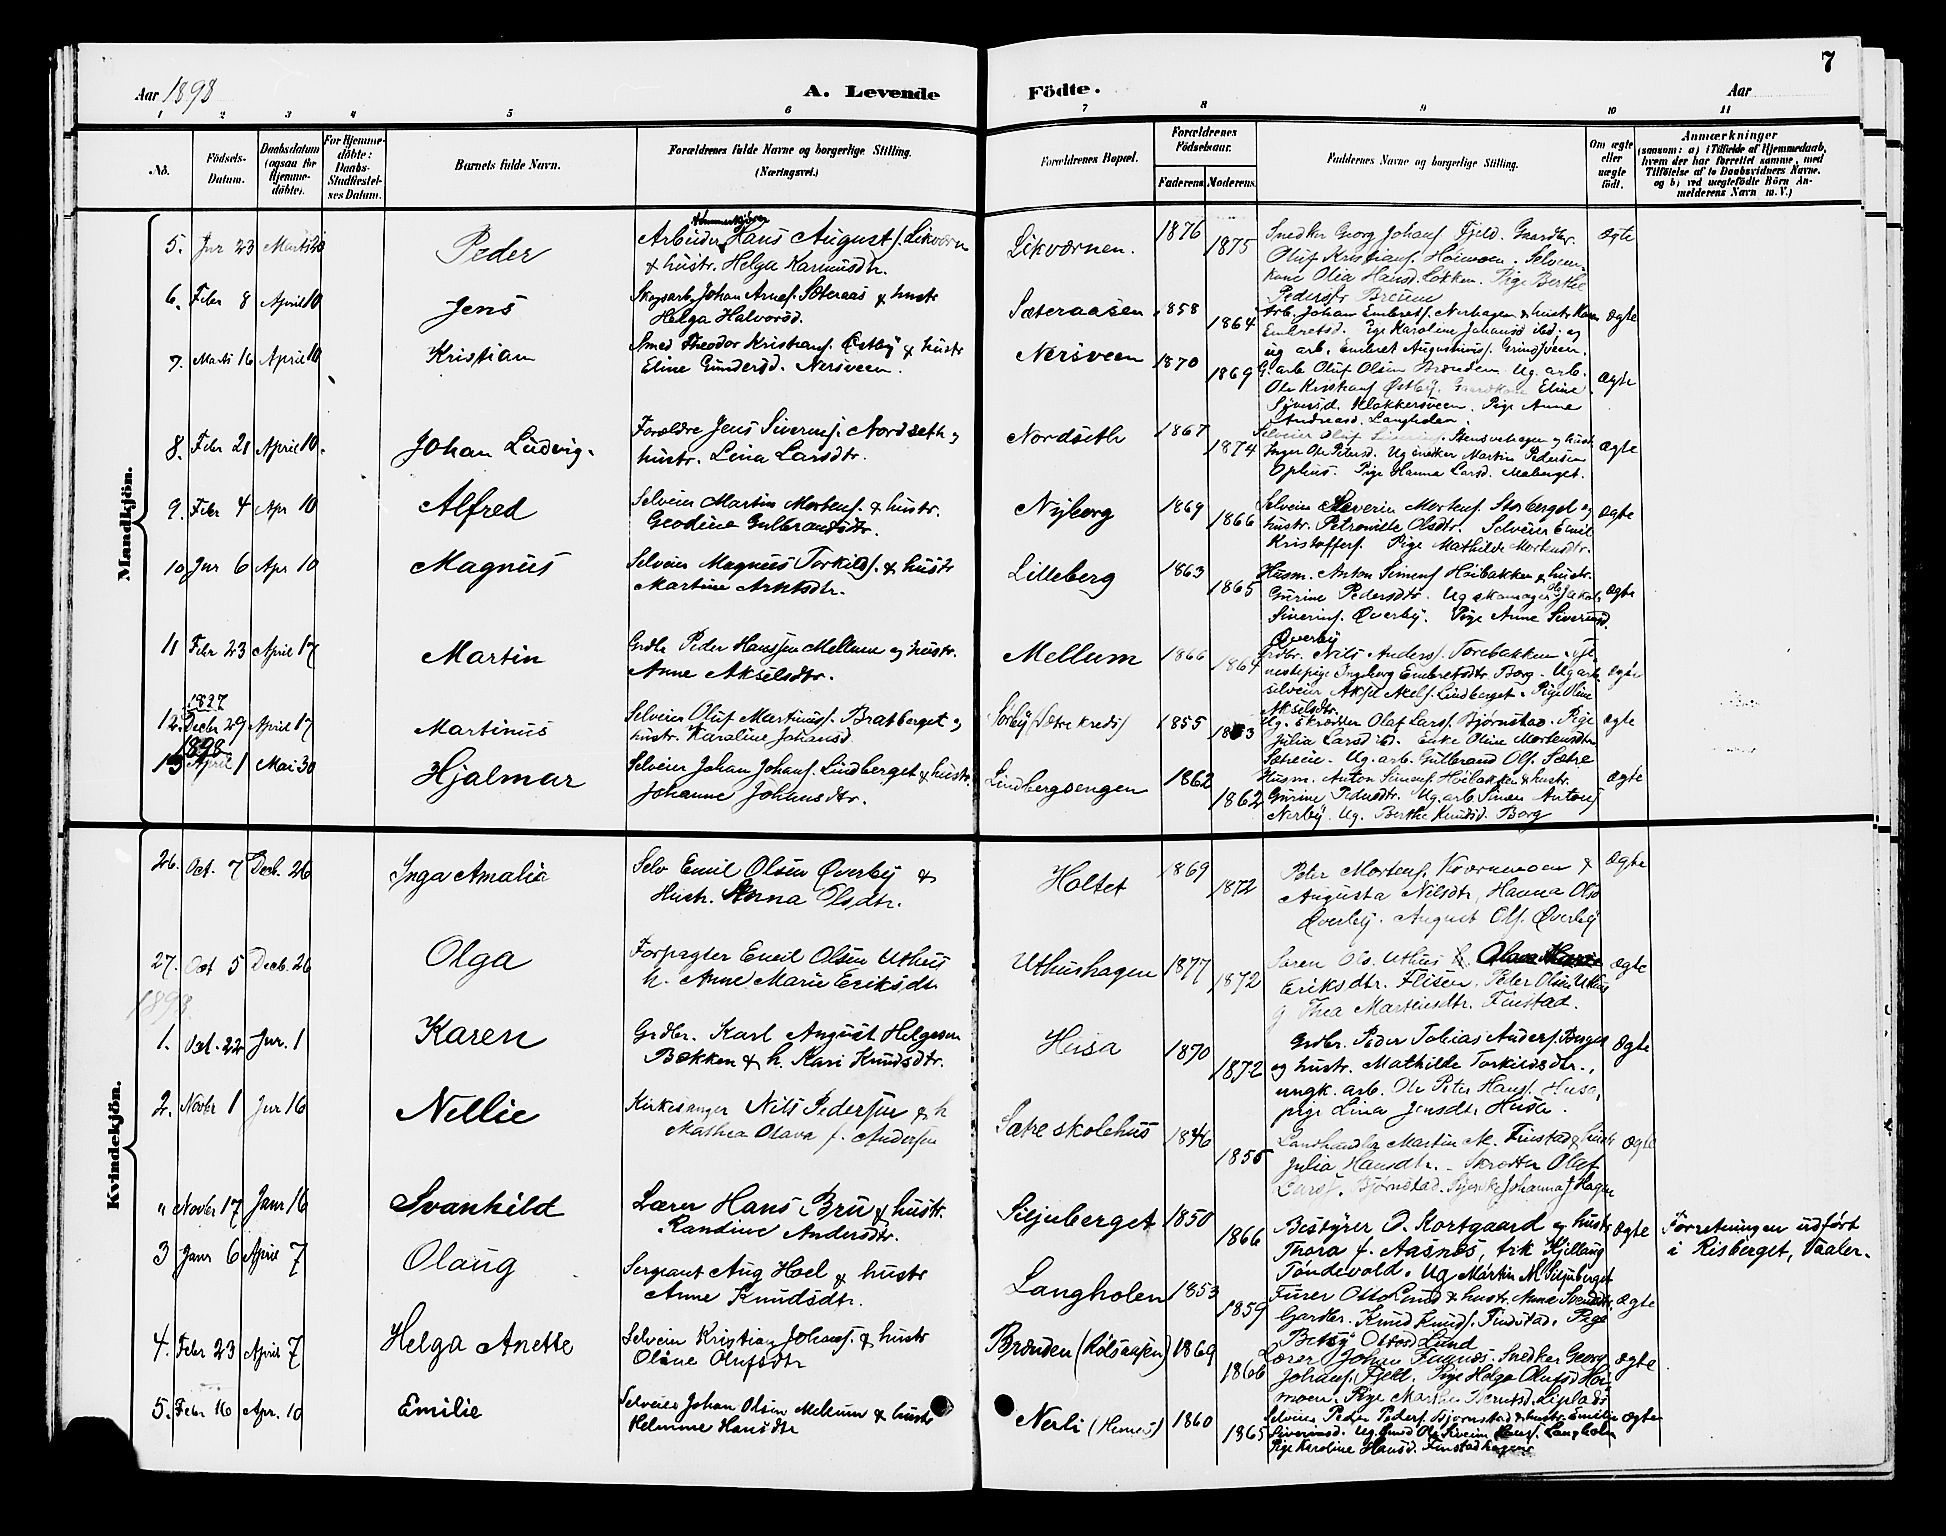 7
Aar 1898
A. Levende
Födte.
Aar
1 2 3 4 5 6 7 8 9 10 11
No.
Födsels-
Datum.
Daabsdatum
(ogsaa for
Hjemme-
döbte).
For Hjemme-
döbte:
Daabs-
Stadfæstel-
ses Datum.
Barnets fulde Navn.
Forældrenes fulde Navne og borgerlige Stilling.
(Næringsvei.)
Forældrenes Bopæl.
Forældrenes
Födselsaar.
Faderens. Moderens.
Faddernes Navne og borgerlige Stilling.
Om ægte
eller
uægte
födt.
Anmærkninger
(saasom: a) i Tilfælde af Hjemmedaab,
hvem der har forrettet samme, med
Tilföielse af to Daabsvidners Navne.
og b) ved uægtefödte Börn An-
melderens Navn m. V.)
Mandkjön.
5. Jnr 23 Peder
Arbeider Hans August Likværn
& hustr. Helga Rasmusdtr.
Likværnen. 1876 1875
Snedker Georg Johans. Fjeld. Gaardbr.
Oluf Kristians. Hoimoen. Selveier
kone Olia Hansd. Løkken. Pige Berthe
Pedersdtr
ægte
6. Febr 8 April 10 Jens
Skogsarb. Johan Arnes. Sæteraas & hustr
Helga Halvorsd.
Sæteraasen 1858 1864
Arb. Johan Embrets. Nerhagen & hustr Karen
Embretsd. Pige Karoline Johansd ibd. og
ug arb. Embret Augustinus. Grindsveen.
ægte
7. Marts 16 April 10 Kristian
Smed Theodor Kristians. Østby & hustr
Eline Gundersd. Nersveen.
Nersveen 1870 1869
G. arb Oluf Olsen Brænden. Ug. arb.
Ole Kristians Østby. Eline
Klokkersveen. Pige Anne
Andreasd. Langholen.
ægte
8. Febr 21 April 10. Johan Ludvig.
Forældre Jens Siverins. Nordseth og
hustr. Lina Larsdtr.
Nordseth 1867 1874
Selveier Stensvehagen og hustr.
Inger Ole Petersd. Ug snedker Martin Pedersen
Ophus. Pige Hanna Larsd. Maberget.
ægte
9. Febr 4 Apr 10 Alfred
Selveier Martin Mortens. & hustr.
Geodine Gulbrandsdtr.
Nyborg 1869 1866
Selveier Severin Mortens. Storberget og
hustr. Petronille Olsdtr. Selveier Emil
Kristoffers. Pige Mathilde Mortensdtr.
ægte
10 Jnr 6 Apr 10 Magnus
Selveier Magnus Torkilds. & hustr
Martine Arntsdtr.
Lilleberg 1863 1865
Husm. Anton Simens. Höibakken & hustr.
Gurine Pedersdtr. Ug skomager Jakob
Siverins. Øverby. Pige Anne Siverinsd.
Øverby
ægte
11 Febr 23 April 17 Martin
Grdbr Peder Hanssen Mellum og hustr.
Anne Akselsdtr.
Mellum 1866 1864
Grdbr. Nils Anders. Torebakken.
Ingeborg Embretsdtr Borg. Ug arb.
selveier Aksel Aksels. Lindberget. Pige Oline
Akselsdtr.
ægte
1897
12. Decbr 29 April 17 Martinus
Selveier Oluf Martinuss. Bratberget og
hustr. Karoline Johansd.
Sörby (Sætre kreds) 1855
Ug. skrædder Olaf Larss. Bjørnstad. Pige
Julia Larsd ibd. Enke Oline Mortensdtr
Sætreeie. Ug. arb. Gulbrand Ols. Sætre
ægte
1898
13 April 1 Mai 30 Hjalmar
Selveier Johan Johans. Lindberget & hustr.
Johanne Johansdtr.
Lindbergsengen 1862 1862
Husm. Anton Simens. Höibakken & hustr.
Gurine Pedersdtr. Ug. arb. Simen Antons
Nerby. Ug. Berthe Knudsd. Borg
ægte
Kvindekjön.
26. Oct. 7 Decb. 26 Inga Amalia
Selv Emil Olsen Øverby &
Hustr. Anna Olsdtr.
Holtet 1869 1872
Peter Mortens. Kværnmoen &
Augusta Nilsdtr, Hanna Olsd
Øverby. August Ols. Øverby
ægte
27. Oct 5 Decb. 26 Olga
Forpagter Emil Olsen Uthus
h. Anne Marie Eriksdtr
Uthushagen 1877 1872
Søren Ols. Uthus
Eriksdtr. Flisen. Peter Olsen Uthus
og Thea Martinsdtr. Finstad.
ægte
1898
1. Oct. 22 Jnr. 1 Karen
Grdbr. Karl August Helgesen
Bækken & h. Kari Knudsdtr.
Husa 1870 1872
Grdbr. Peder Tobias Anders. Berger
og hustr. Mathilde Torkildsdtr.,
ungk. arb. Ole Peter Hans. Husa,
pige Lina Jensdtr Husa.
ægte
2. Novbr 1 Jnr 16 Nellie
Kirkesanger Nils Pedersen & h
Mathea Olava f. Andersen
Sætre skolehus 1846 1855
Landhandler Martin M. Finstad & hustr
Julia Hansdtr. Skrædder Olaf
Larss. Bjørnstad. Johanna J Hagen
ægte
" Novbr 17 Janr 16 Svanhild
Lærer Hans Bru & hustr.
Randine Andersdtr.
Siljuberget 1850 1866
Bestyrer O. Kortgaard og hustr
Thora f. Aasnæs, frk Kjellaug
Töndevold. Ug Martin M. Siljuberget
ægte
Forretningen udført
i Risberget, Vaaler.
3 Janr 6 April 7 Olaug
Sergeant Aug Hoel & hustr
Anne Knudsdtr.
Langholen 1853 1859
Furer Otto Lund & hustr. Anne Svendsdtr.
Gardbr. Knud Knuds. Finstad. Pige
Betsy Ottosd Lund
ægte
4. Febr 23 April 7 Helga Anette
Selveier Kristian Johans. & hustr
Oline Olufsdtr
Brænden (Kölsaasen) 1869 1866
Lærer Johan Faanæs. Snedker Georg
Johans. Fjeld. Pige Helga Olufsd Hoi-
moen. Pige Marthe Berntsd.
ægte
5. Febr 16 Apr. 10 Emilie
Selveier Johan Olsen Mellum & hustr
Helmine Hansdtr
Nerli (Hernes) 1860 1865
Selveier Peder Peders. Bjornstad & hustr. Emilie
Siverinsd. Ug. Smed Ole Siverin Hans. Langholen
Pige Karoline Hansd. Finstadhagen
ægte